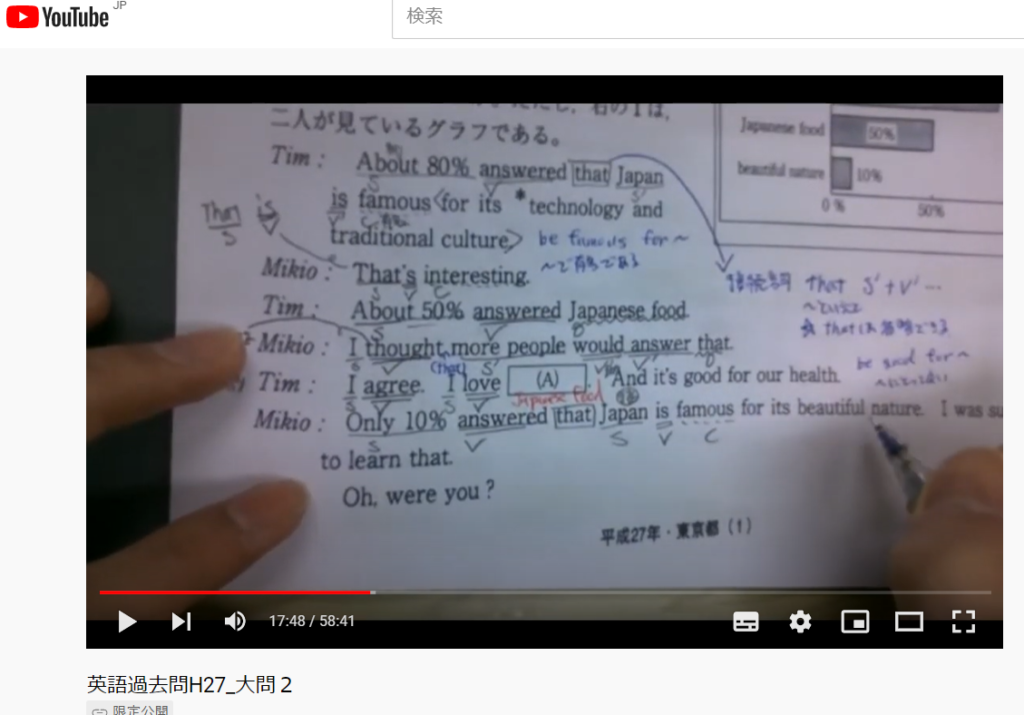 YouTube JP
検索
二人が見ているグラフである。
Tim : About 80% answered that Japan
is famous for its *technology and
traditional culture
be famous for ~
~で有名である
That is
S
Mikio : That's interesting.
Tim : About 50% answered Japanese food.
Mikio : I thought more people would answer that.
Tim : I agree. I love (A). And it's good for our health.
Japanese food
Mikio : Only 10% answered that Japan is famous for its beautiful nature. I was su
S V S V C
to learn that.
Oh, were you?
平成27年・東京都(1)
Japanese food 50%
beautiful nature 10%
0% 50%
接続詞 that S'+V'…
be good for~
17:48 / 58:41
英語過去問H27_大問２
限定公開